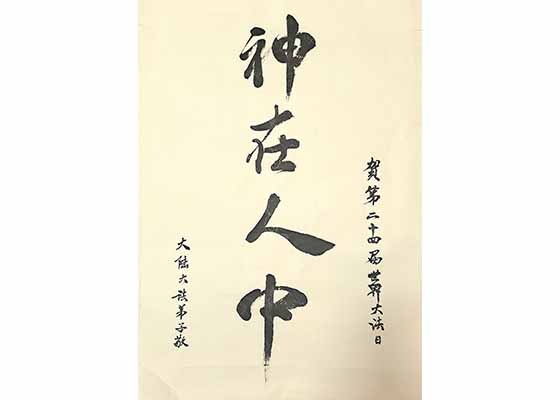 賀第二十四届世界大法日
神在人中
大陆大法弟子敬